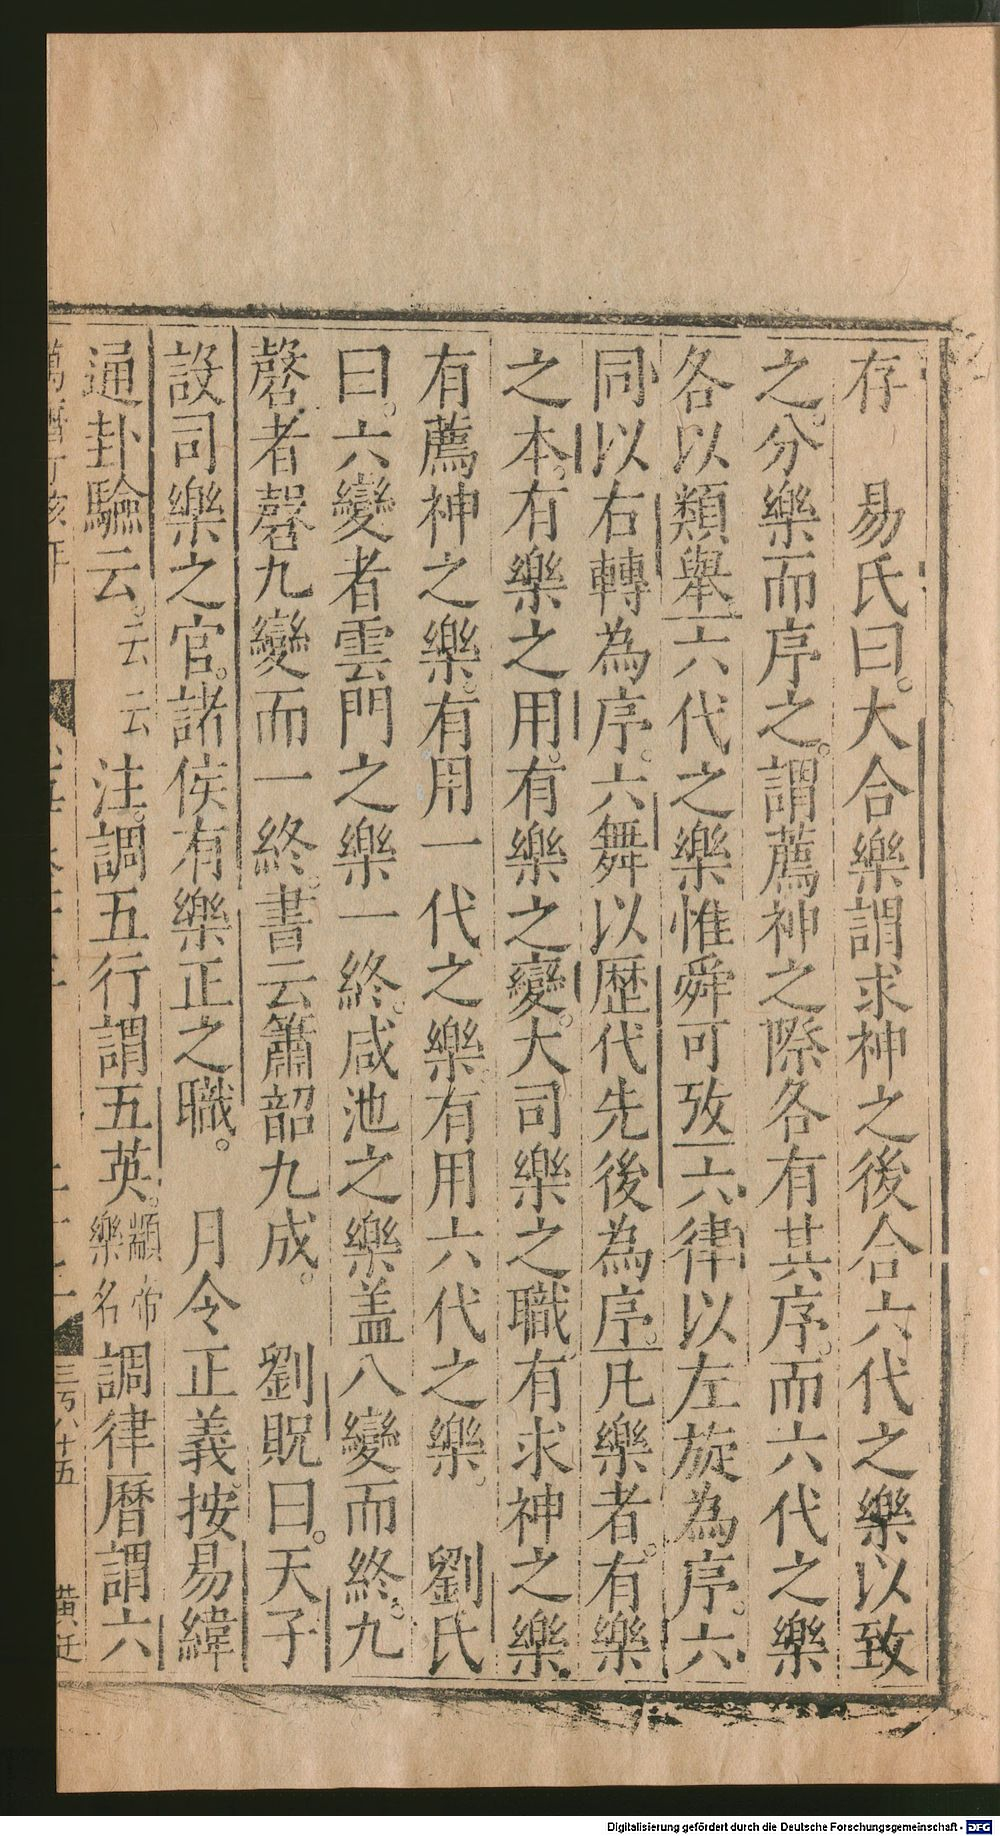 存　易氏曰。大合樂謂求神之後合六代之樂以致
之。分樂而序之。謂薦神之際各有其序。而六代之樂
各以類舉六代之樂惟舜可攷六律以左旋為序。六
同以右轉為序。六舞以歴代先後為序。凡樂者。有樂
之本。有樂之用。有樂之變。大司樂之職有求神之樂
有薦神之樂。有用一代之樂有用六代之樂。　劉氏
曰。六變者雲門之樂一終。咸池之樂盖八變而終。九
㲈者㲈九變而一終。書云簫韶九成。　劉貺曰。天子
設司樂之官。諸侯有樂正之職。　月令正義。按易緯
通卦驗云。云云注。調五行謂五英。顓帝樂名調律曆謂六
三百八十五
Digitalisierung gefördert durch die Deutsche Forschungsgemeinschaft - DFG